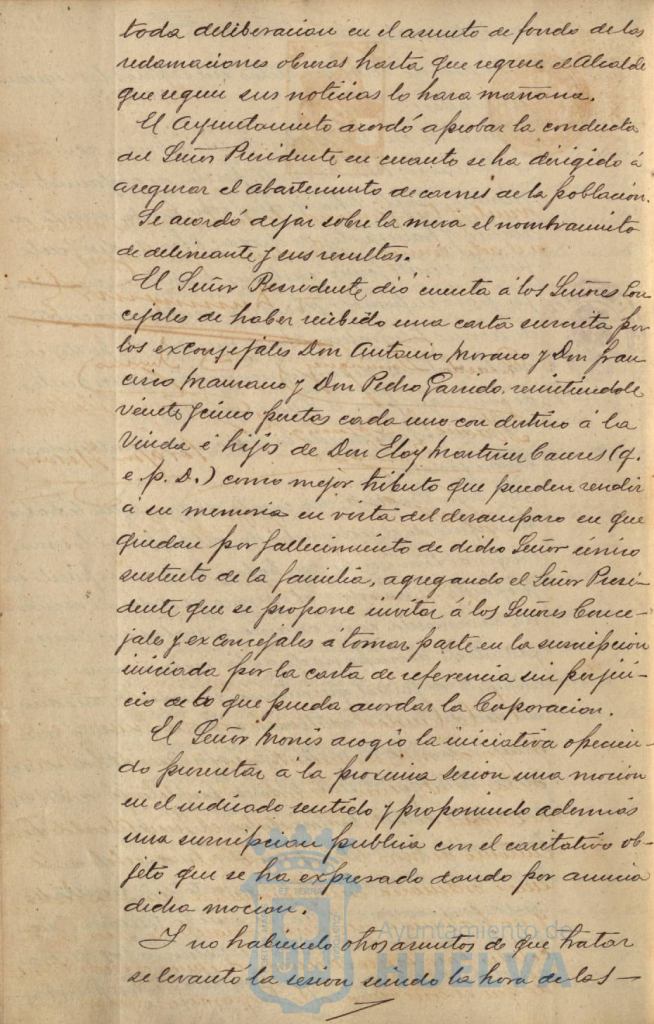 toda deliberacion en el asunto de fondo de las
reclamaciones obreras hasta que regrese el Alcalde
que segun sus noticias lo hara mañana.
El Ayuntamiento acordó aprobar la conducta
del Señor Presidente en cuanto se ha dirigido á
asegurar el abastecimiento de carnes de la población.
Se acordó dejar sobre la mesa el nombramiento
de delineante y sus resultas.
El Señor Presidente dió cuenta á los Señores Con-
cejales de haber recibido una carta suscrita por
los exconcejales Don Antonio Morano y Don Fran
cisco Mansano y Don Pedro Garrido remitiendole
veinte y cinco pesetas cada uno con destino á la
Viuda é hijos de Don Eloy Martinez (q.
e. p. D.) como mejor tributo que pueden rendir
á su memoria en vista del desamparo en que
quedan por fallecimiento de dicho Señor único
sustento de la familia, agregando el Señor Presi-
dente que se propone invitar á los Señores Conce-
jales y exconcejales á tomar parte en la suscripcion
iniciada por la carta de referencia sin perjui-
cio de lo que pueda acordar la Corporacion.
El Señor Monis acogio la iniciativa ofrecien-
do presentar á la proxima sesion una mocion
en el indicado sentido y proponiendo además
una suscripcion publica con el caritativo ob-
jeto que se ha expresado dando por anuncia
dicha mocion.
Y no habiendo otros asuntos de que tratar
se levantó la sesion siendo la hora de las —
Ayuntamiento de
HUELVA